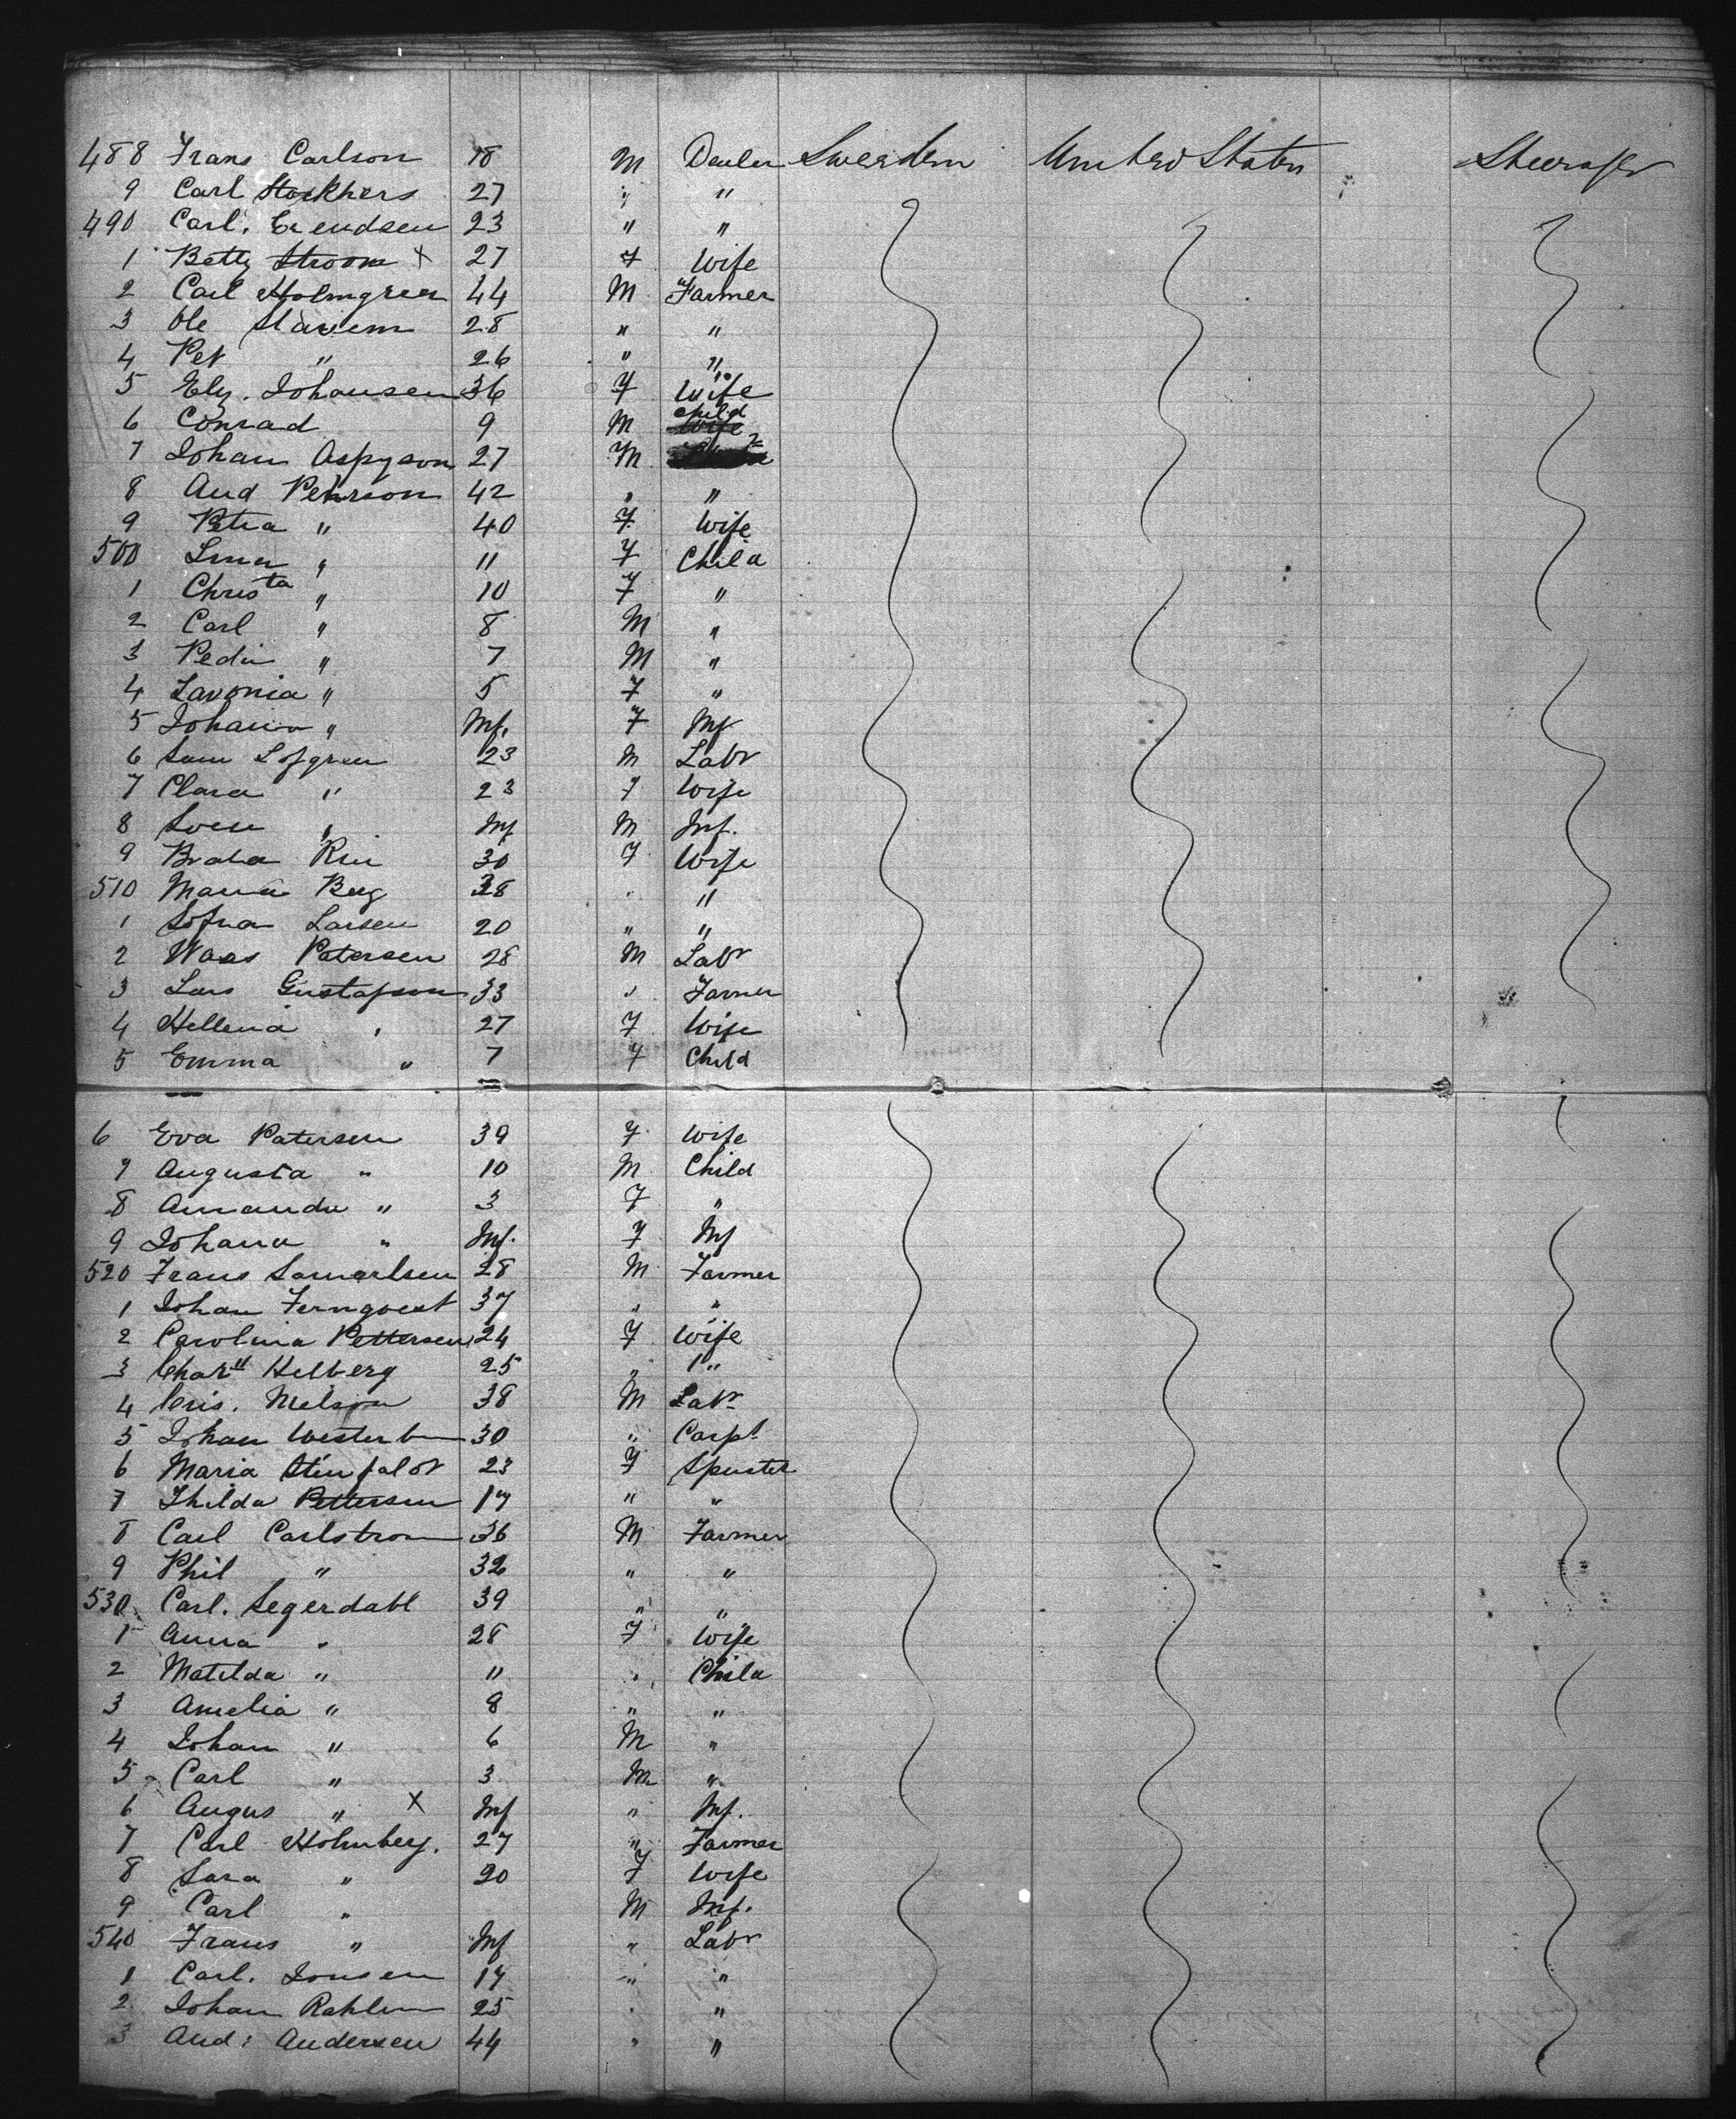 488 Frans Carlson 18 M Dealer Sweeden United States Steerage
9 Carl 27 " "
490 Carl. Erendsen 23 " "
1 Betty Stroom x 27 F Wife
2 Carl Holmgren 44 M Farmer
3 Ole Slaviem 28 " "
4 Pet " 26 " "
5 Ely. Johansen 36 F Wife
6 Conrad 9 M Child
7 Johan Aspyson 27 M
8 And Pehrson 42 " "
9 Petra " 40 F Wife
500 Lina " 11 F Child
1 Christa " 10 F "
2 Carl " 8 M "
3 Pedin " 7 M "
4 Lavonia " 5 F "
5 Johana " Inf. F Inf
6 Sam Lofgren 23 M Labr
7 Clara " 23 F Wife
8 " Inf M Inf.
9 30 F Wife
510 Maria Berg 38 " "
1 Sofna Larsen 20 " "
2 Waas Petersen 28 M Labr
3 Lars Gustafson 33 " Farmer
4 Hellena " 27 F Wife
5 Emma " 7 F Child
6 Eva Patersen 39 F Wife
7 Augusta " 10 M Child
8 Amanda " 3 F "
9 Johana " Inf. F Inf
520 Frans Samuelsen 28 M Farmer
1 Johan Fernqvest 37 " "
2 Carolina Pettersen 24 F Wife
3 Charll Helberg 25 " "
4 Cris. Nelson 38 M Labr
5 Johan 30 " Carpt
6 Maria 23 F Spinster
7 Thilda Pettersen 17 " "
8 Carl Carlstrom 36 M Farmer
9 Phil " 32 " "
530 Carl. Segerdahl 39 " "
1 Anna " 28 F Wife
2 Matilda " 11 " Child
3 Amelia " 8 " "
4 Johan " 6 M "
5 Carl " 3 M "
6 Augus " x Inf " Inf.
7 Carl Holmberg. 27 " Farmer
8 Sara " 20 F Wife
9 Carl " M Inf.
540 Frans " Inf " Labr
1 Carl. Jonsen 17 " "
2 Johan Rahlin 25 " "
3 And: Andersen 44 " "